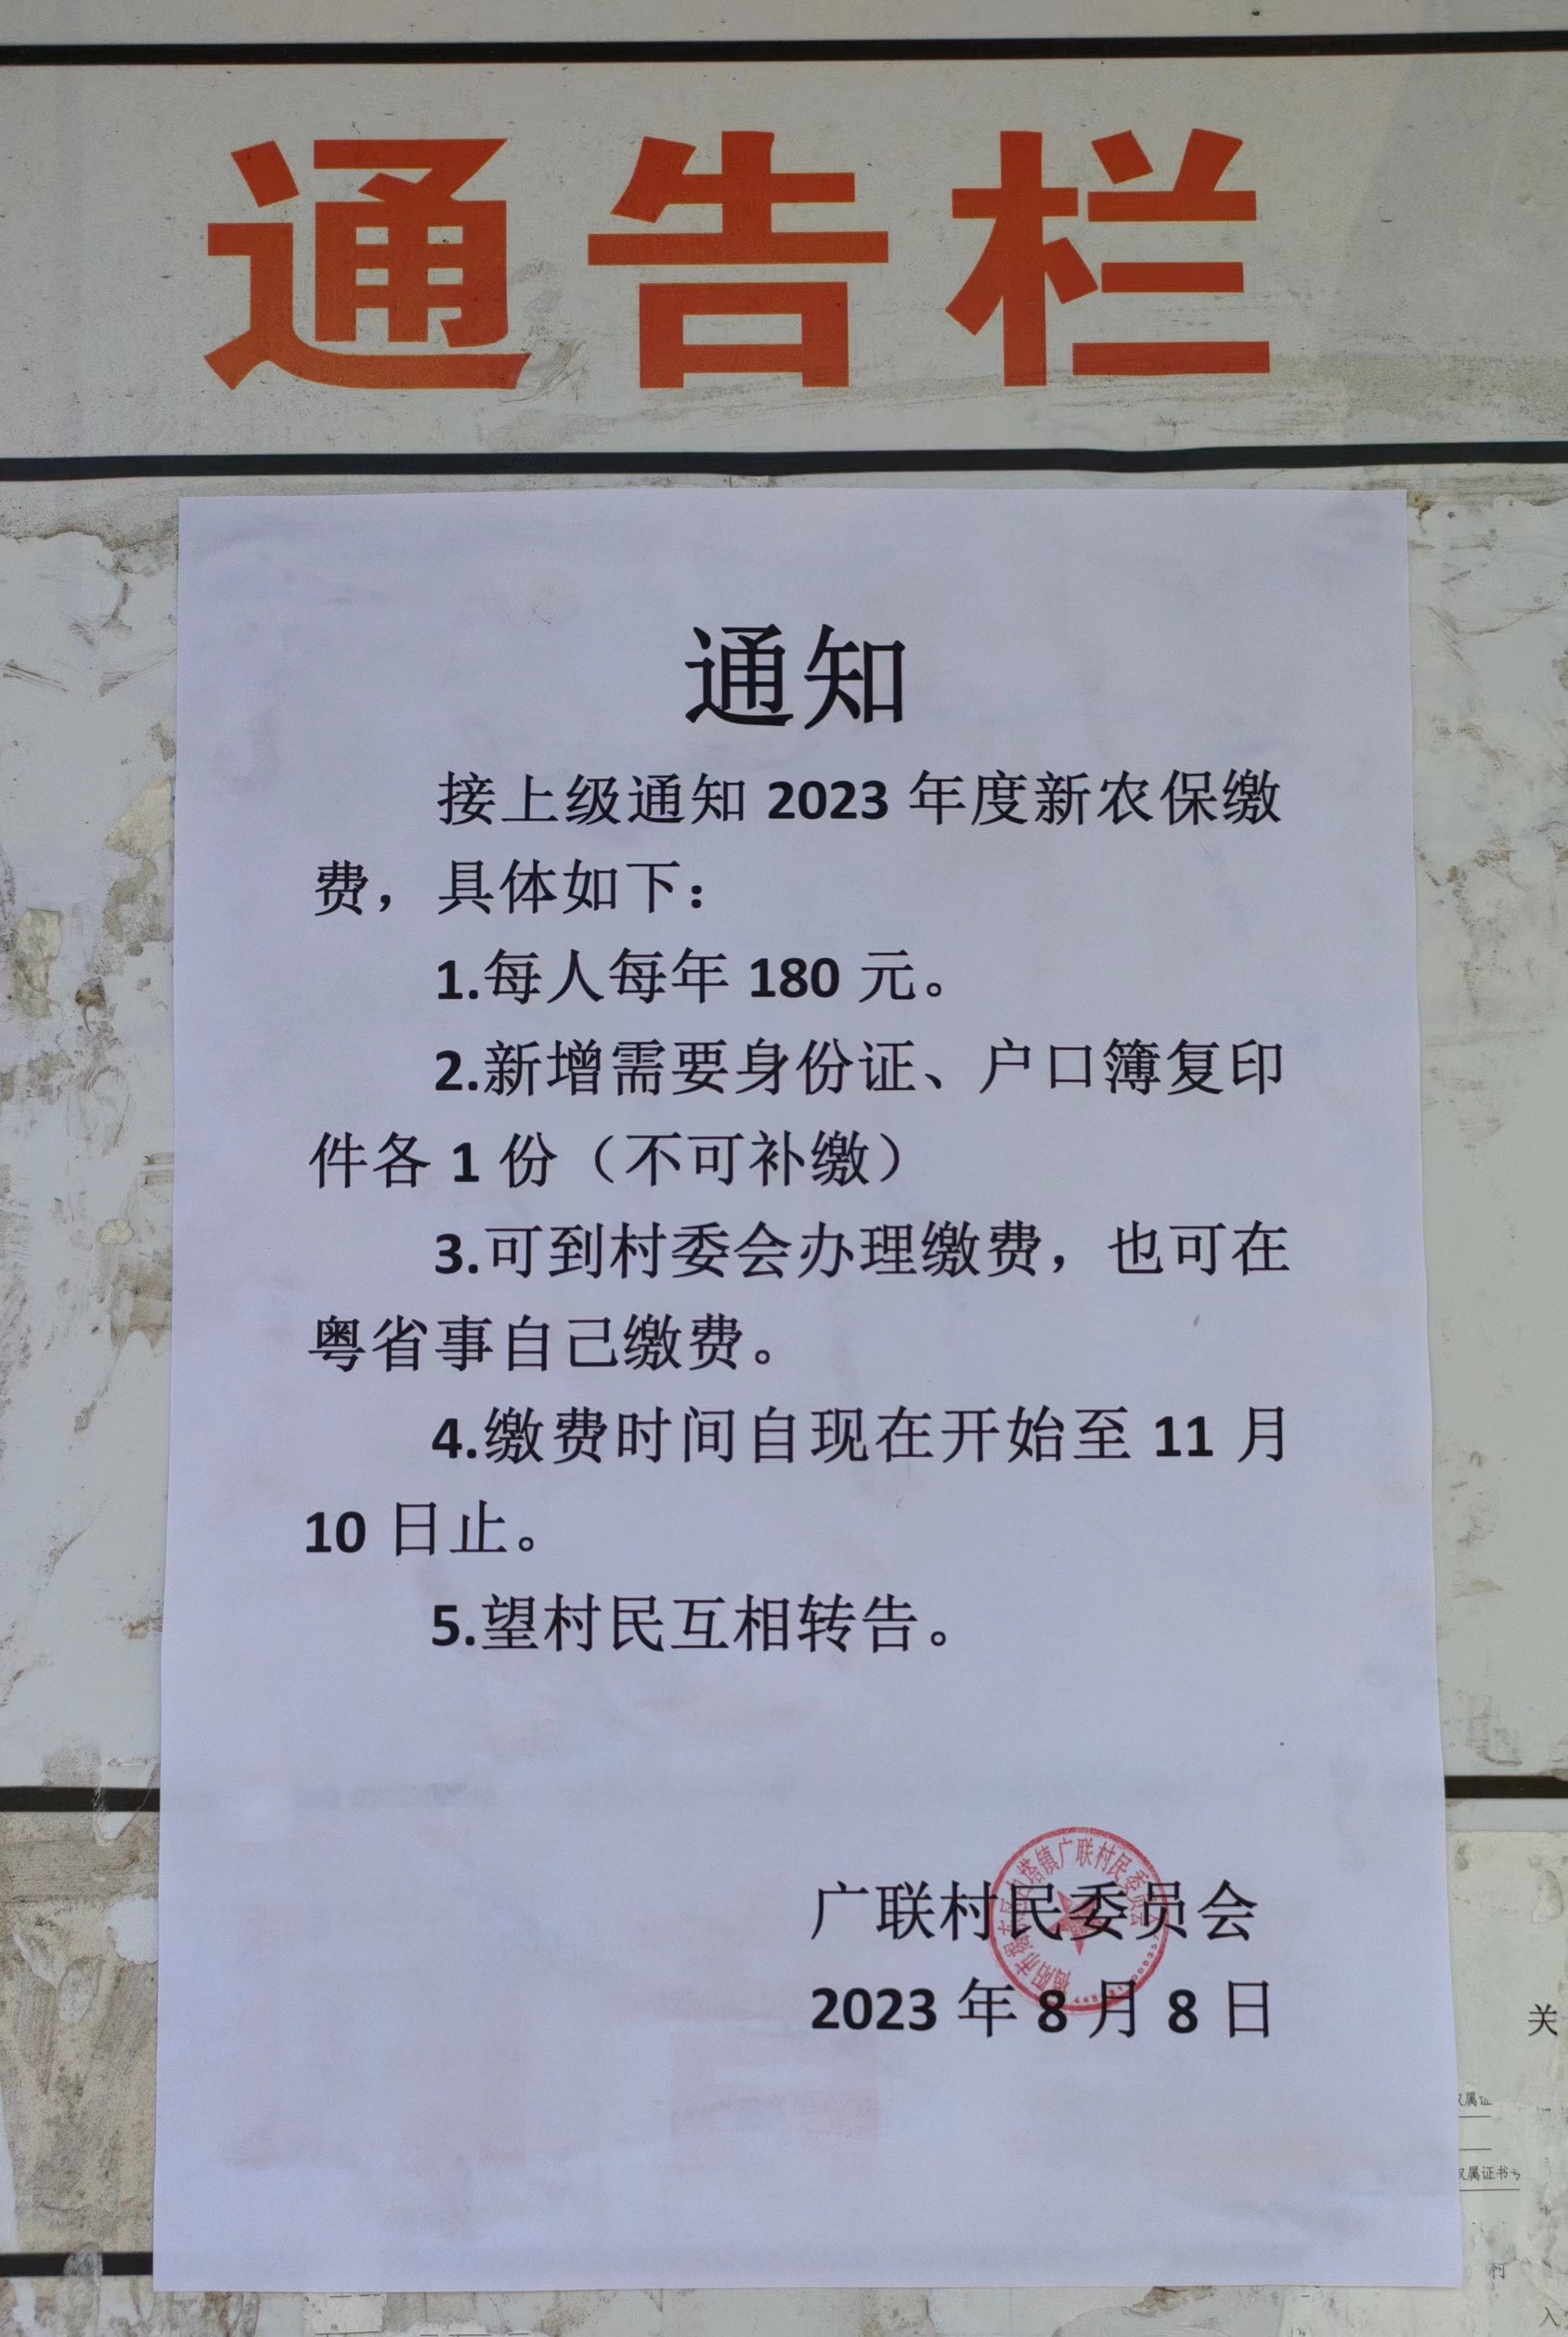 通告栏
通知
接上级通知 2023 年度新农保缴
费，具体如下：
1.每人每年 180 元。
2.新增需要身份证、户口簿复印
件各 1 份（不可补缴）
3.可到村委会办理缴费，也可在
粤省事自己缴费。
4.缴费时间自现在开始至 11 月
10 日止。
5.望村民互相转告。
广联村民委员会
2023 年 8 月 8 日
塔镇广联村民委员会
关
属证
权属证书